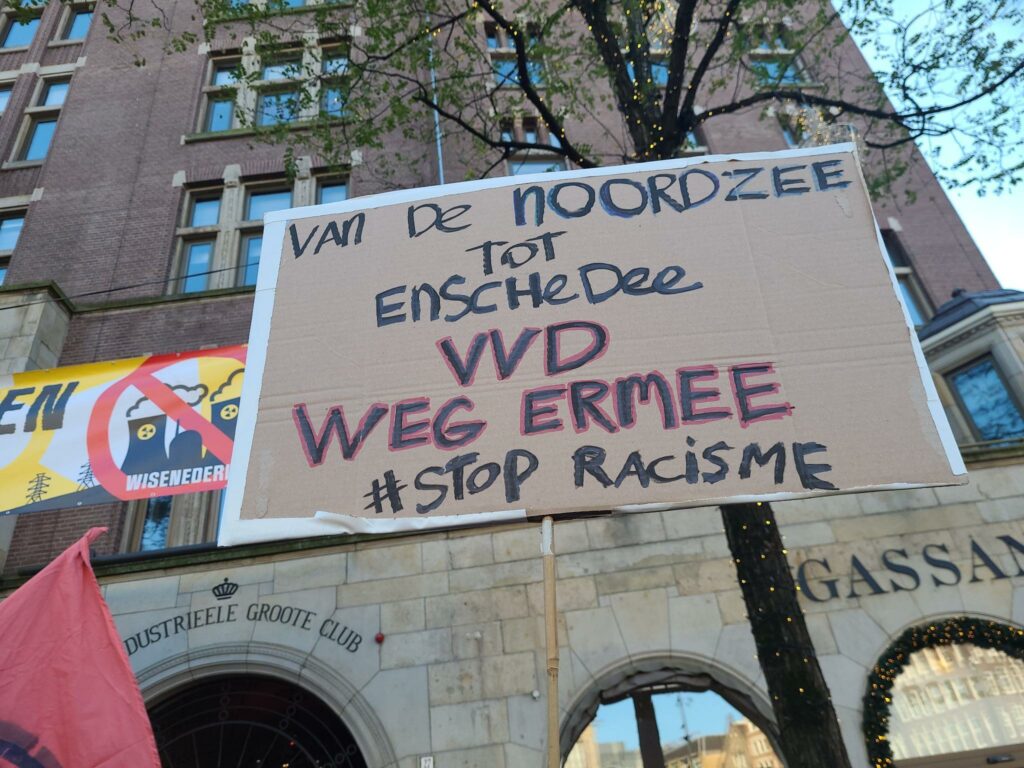 VAN De NOORDZEE
TOT
ENSCHeDee
VVD
WEG ERMEE
#STOP RACiSME
EN
WISENEDERL
DUSTRIEELE GROOTE CLUB
GASSAN